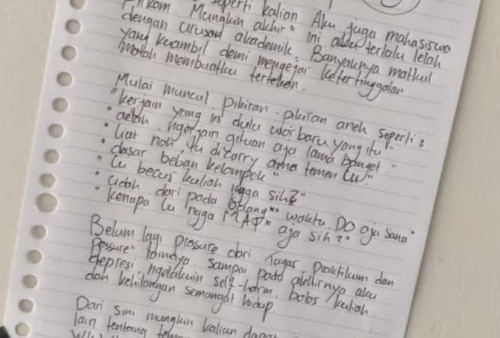 seperti kalian Aku juga mahasiswa
Filkom. Mungkin akhir" ini aku terlalu lelah
dengan urusan akademik. Banyaknya matkul
yang kuambil demi mengejar ketertinggalan
malah membuatku tertekan.
Mulai muncul pikiran-pikiran aneh seperti:
"kerjain yang ini dulu woi baru yang itu"
• "aelah, ngerjain gituan aja lama banget"
• "liat noh, tu dicarry ama temen lu!"
• "dasar beban kelompok"
• "Lu becus kuliah ngga sih?"
• "udah dari pada buang" waktu DO aja sana"
• "kenapa lu ngga aja sih?"
Belum lagi pressure dari tugas praktikum dan
pressure" lainnya sampai pada akhirnya aku
depresi ngelakuin self-harm, bolos kuliah
dan kehilangan semangat hidup
Dari sini mungkin kalian dapat
lain tentang